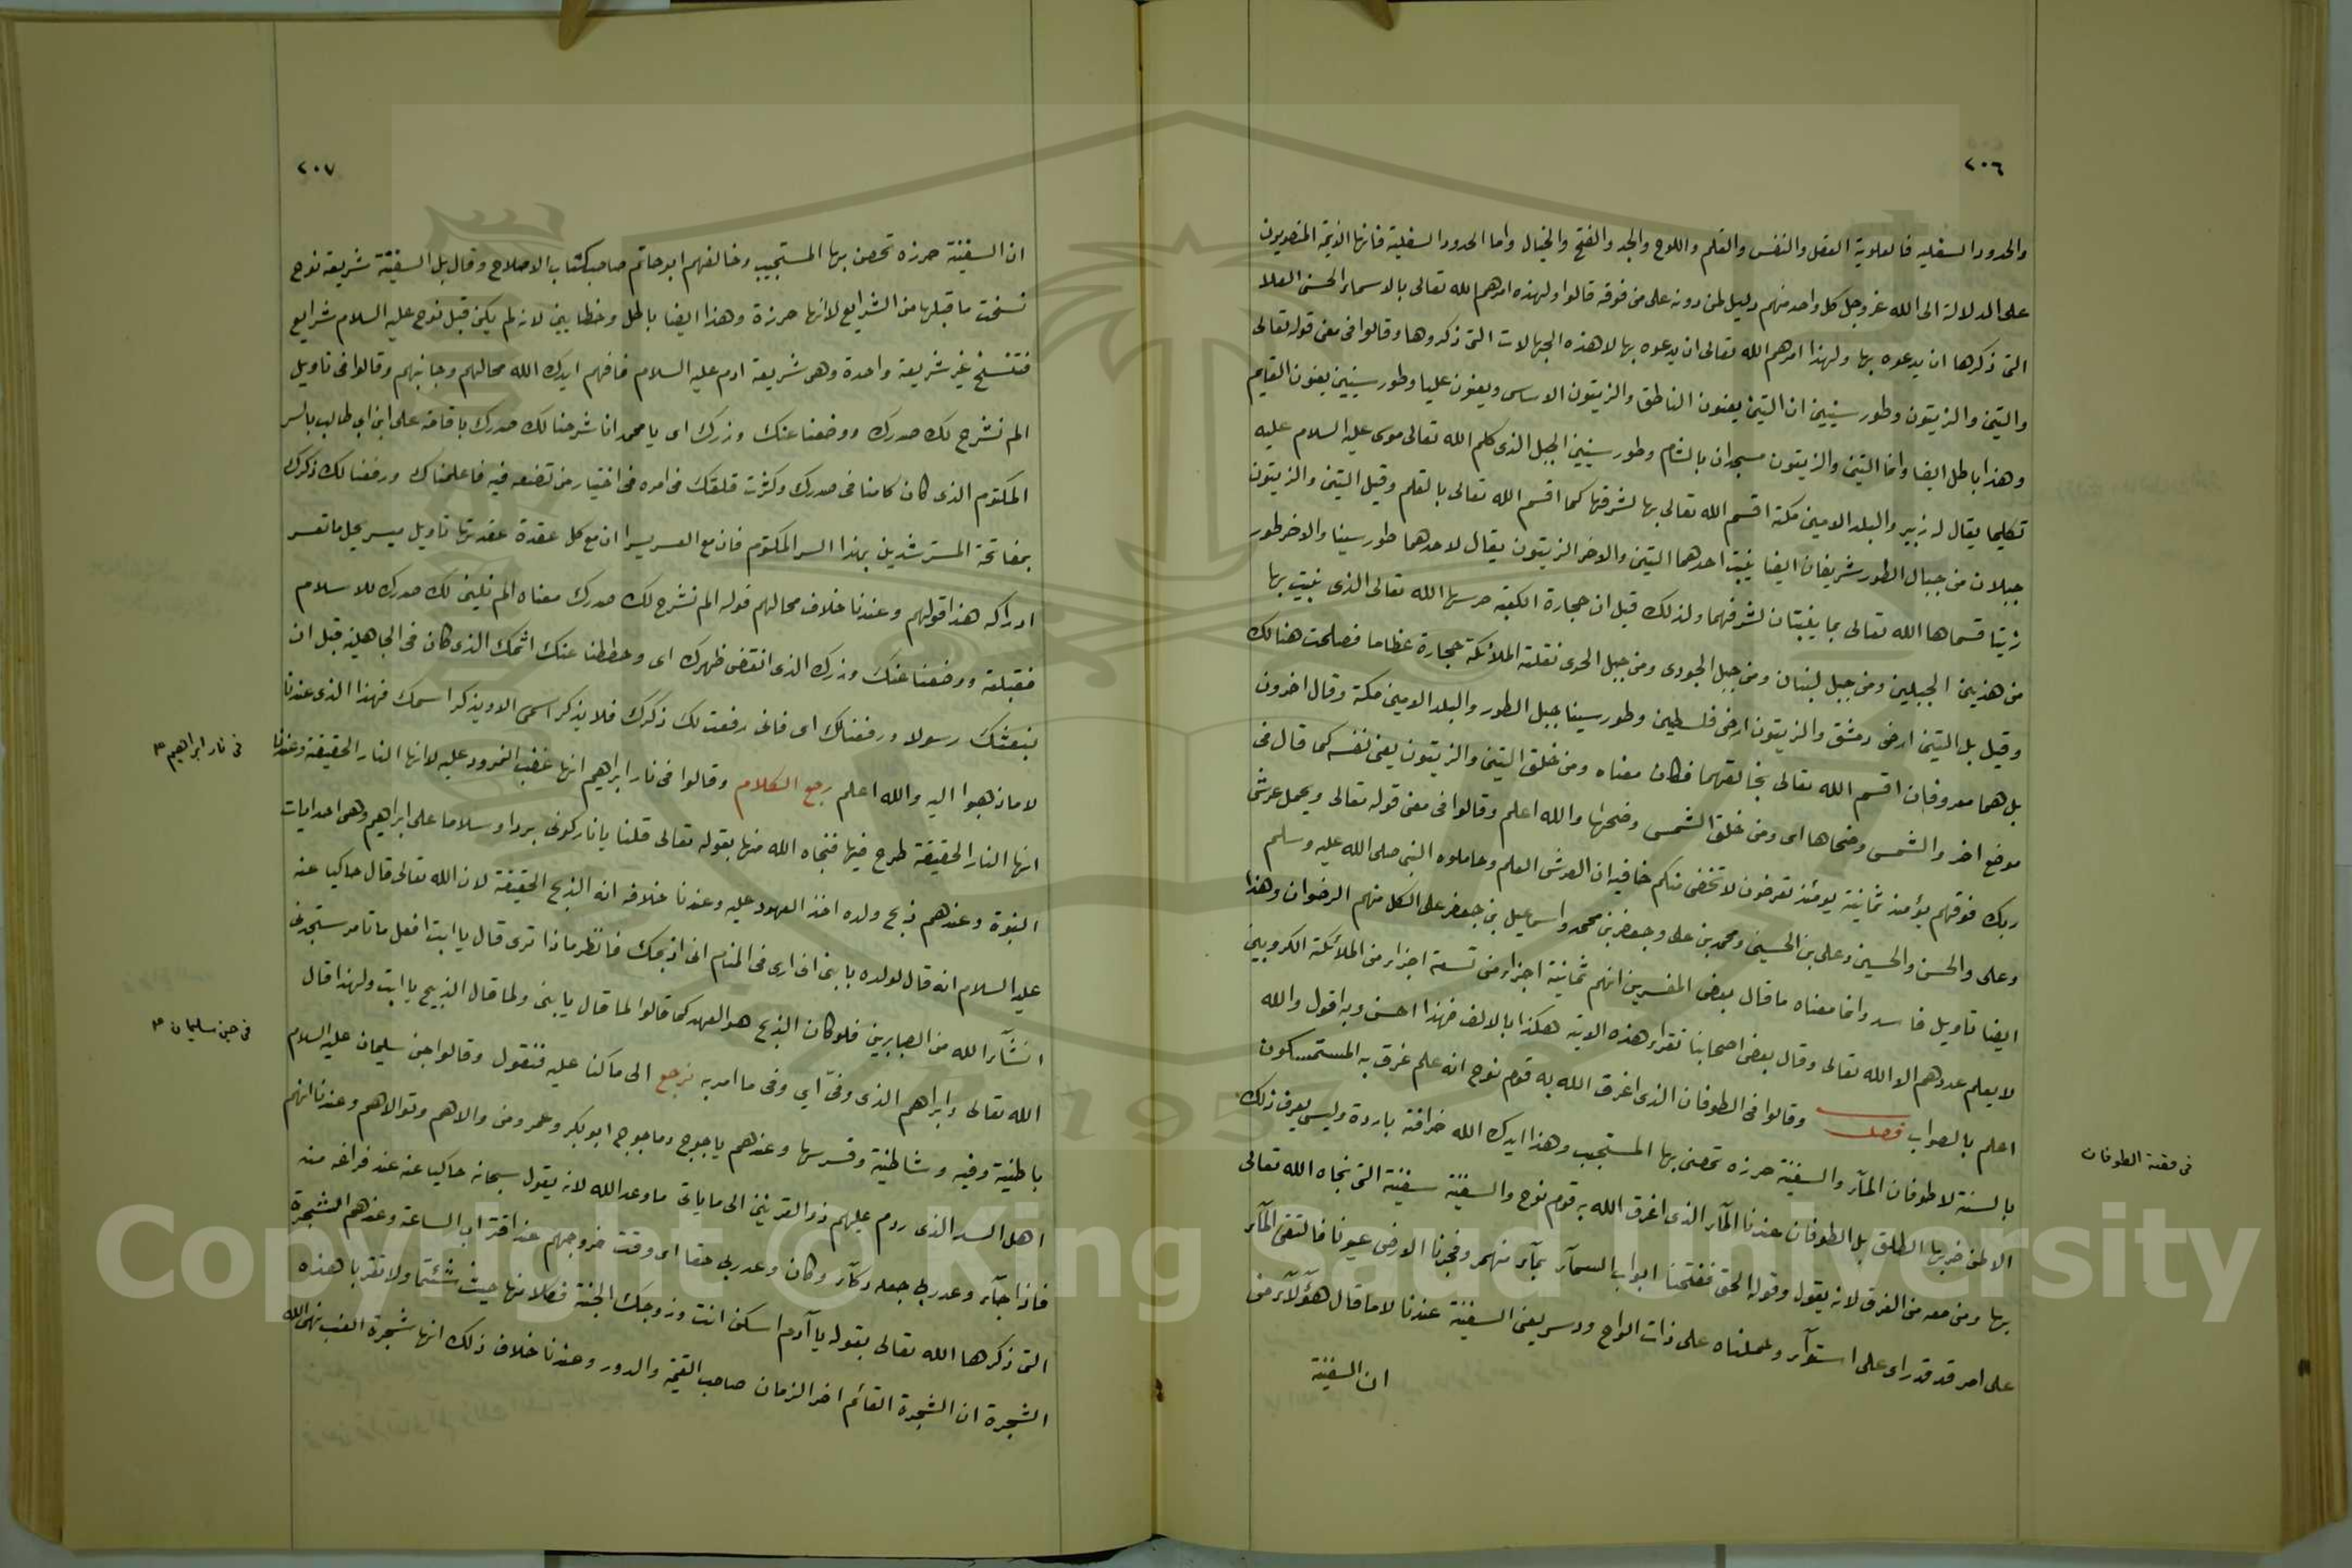 ٢٠٦
والحدود السفليه فالعلوية العقل والنفس والقلم واللوح والجد والفتح والخيال واما الحدود السفلية فانها الائمة المنصوبون
على الدلالة الى الله عز وجل كل واحد منهم دليل لمن دونه على من فوقه قالوا ولهذه امرهم الله تعالى بالاسماء الحسنى العلا
التى ذكرها ان يدعوه بها ولهذا امرهم الله تعالى ان يدعوه بها لا هذه الجهالات التى ذكروها وقالوا فى معنى قوله تعالى
والتين والزيتون وطور سينين ان التين يعنون الناطق والزيتون الاساس ويعنون عليا وطور سينين يعنون القايم
وهذا باطل ايضا وانما التين والزيتون مسجدان بالشام وطور سينين الجبل الذى كلم الله تعالى موسى عليه السلام عليه
تكليما يقال له زبير والبلد الامين مكة اقسم الله تعالى بها لشرفها كما اقسم الله تعالى بالقلم وقيل التين والزيتون
جبلان من جبال الطور شريفان ايضا ينبت احدهما التين والاخر الزيتون يقال لاحدهما طور سينا والاخر طور
زيتا قسماها الله تعالى بما ينبتان لشرفهما ولذلك قيل ان حجارة الكعبة حرسها الله تعالى الذى بنيت بها
من هذين الجبلين ومن جبل لبنان ومن جبل الجودى ومن جبل الحرى نقلته الملائكة حجارة عظاما فصلحت هنالك
وقيل بل التين ارض دمشق والزيتون ارض فلسطين وطور سينا جبل الطور والبلد الامين مكة وقال اخرون
بل هما معروفان اقسم الله تعالى بخالقهما فكان معناه ومن خلق التين والزيتون يعنى نفسه كما قال فى
موضع اخر والشمس وضحاها اى ومن خلق الشمس وضحها والله اعلم وقالوا فى معنى قوله تعالى ويحمل عرش
ربك فوقهم يؤمئذ ثمانية يومئذ تعرضون لا تخفى منكم خافيه ان العرش العلم وحاملوه النبى صلى الله عليه وسلم
وعلى والحسن والحسين وعلى بن الحسين ومحمد بن على وجعفر بن محمد واسماعيل بن جعفر على الكل منهم الرضوان وهذا
ايضا تاويل فاسد وانما معناه ما قال بعض المفسرين انهم ثمانية اجزاء من تسعة اجزاء من الملائكة الكروبين
لا يعلم عددهم الا الله تعالى وقال بعض اصحابنا نقراء هذه الاية هكذا بالالف فهذا احسن وبه اقول والله
اعلم بالصواب فصل وقالوا فى الطوفان الذى اغرق الله به قوم نوح انه علم غرق به المستمسكون
فى قصة الطوفان
بالسنة لا طوفان الماء والسفينة حرزه تحصن بها المستجيب وهذا ايدك الله خرافة باردة وليس يعرف ذلك
الا من ضربها الطلق بل الطوفان عندنا الماء الذى اغرق الله به قوم نوح والسفينة سفينة التى نجاه الله تعالى
بها ومن معه من الغرق لانه يقول وقوله الحق ففتحنا ابواب السمآء بمآء منهمر وفجرنا الارض عيونا فالتقى المآء
على امر قد قدر اى على استوآء وحملناه على ذات الواح ودسر يعنى السفينة عندنا لا ما قال هؤلآء من
ان السفينة
٢٠٧
ان السفينة حرزه تحصن بها المستجيب وخالفهم ابو حاتم صاحب كتاب الاصلاح وقال بل السفينة شريعة نوح
نسخت ما قبلها من الشرايع لانها حرزة وهذا ايضا باطل وخطا بين لانه لم يكن قبل نوح عليه السلام شرايع
فتنسخ غير شريعة واحدة وهى شريعة ادم عليه السلام فافهم ايدك الله محالهم وجانبهم وقالوا فى تاويل
الم نشرح لك صدرك ووضعنا عنك وزرك اى يا محمد انا شرحنا لك صدرك باقامة على ابن ابى طالب بالسر
المكتوم الذى كان كامنا فى صدرك وكثرت قلقك فى امره فى اختيار من تضعه فيه فاعلمناك ورفعنا لك ذكرك
بمفاتحة المسترشدين بهذا السر المكتوم فان مع العسر يسرا ان مع كل عقدة عقدتها تاويل ميسر يحل ما تعسر
ادراكه هذا قولهم وعندنا خلاف محالهم قوله الم نشرح لك صدرك معناه الم نلين لك صدرك للاسلام
فقبلته ووضعنا عنك وزرك الذى انقض ظهرك اى وحططنا عنك اثمك الذى كان فى الجاهلية قبل ان
نبعثك رسولا ورفعنا لك اى فانى رفعت لك ذكرك فلا يذكر اسمى الا ويذكر اسمك فهذا الذى عندنا
لا ما ذهبوا اليه والله اعلم رجع الكلام وقالوا فى نار ابراهيم انها غضب النمرود عليه لا انها النار الحقيقة وعندنا
فى نار ابراهيم ع
انها النار الحقيقة طرح فيها فنجاه الله منها بقوله تعالى قلنا يا نار كونى بردا وسلاما على ابراهيم وهى احد ايات
النبوة وعندهم ذبح ولده اخذ العهود عليه وعندنا خلافه انه الذبح الحقيقة لان الله تعالى قال حاكيا عنه
عليه السلام انه قال لولده يا بنى انى ارى فى المنام انى اذبحك فانظر ماذا ترى قال يا ابت افعل ما تامر ستجدنى
انشآء الله من الصابرين فلو كان الذبح هو العهد كما قالوا لما قال يا بنى ولما قال الذبيح يا ابت ولهذا قال
الله تعالى وابراهم الذى وفىّ اي وفى ما امر به نرجع الى ما كنا عليه فنقول وقالوا جن سليمان عليه السلام
فى جن سليمان ع
باطنية وفيه وشاطنية وفسرها وعندهم ياجوج وماجوج ابو بكر وعمر ومن والاهم وتوالاهم وعندنا انهم
اهل السد الذى ردم عليهم ذو القرنين الى ما ياتى ما وعد الله لانه يقول سبحانه حاكيا عنه عند فراغه منه
فاذا جآء وعد ربى جعله دكآء وكان وعد ربى حقا اى وقت خروجهم عند اقتراب الساعة وعندهم الشجرة
التى ذكرها الله تعالى بقوله يا آدم اسكن انت وزوجك الجنة فكلا منها حيث شئتما ولا تقربا هذه
الشجرة ان الشجرة القائم اخر الزمان صاحب القيمة والدور وعندنا خلاف ذلك انها شجرة العنب نهى الله
Copyright © King Saud University
1957